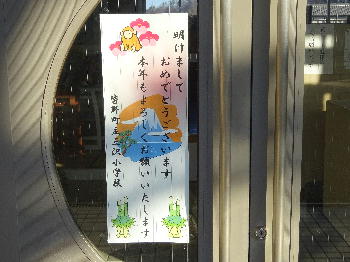 明けまして
おめでとうございます
本年もよろしくお願いいたします
皆野町立三沢小学校